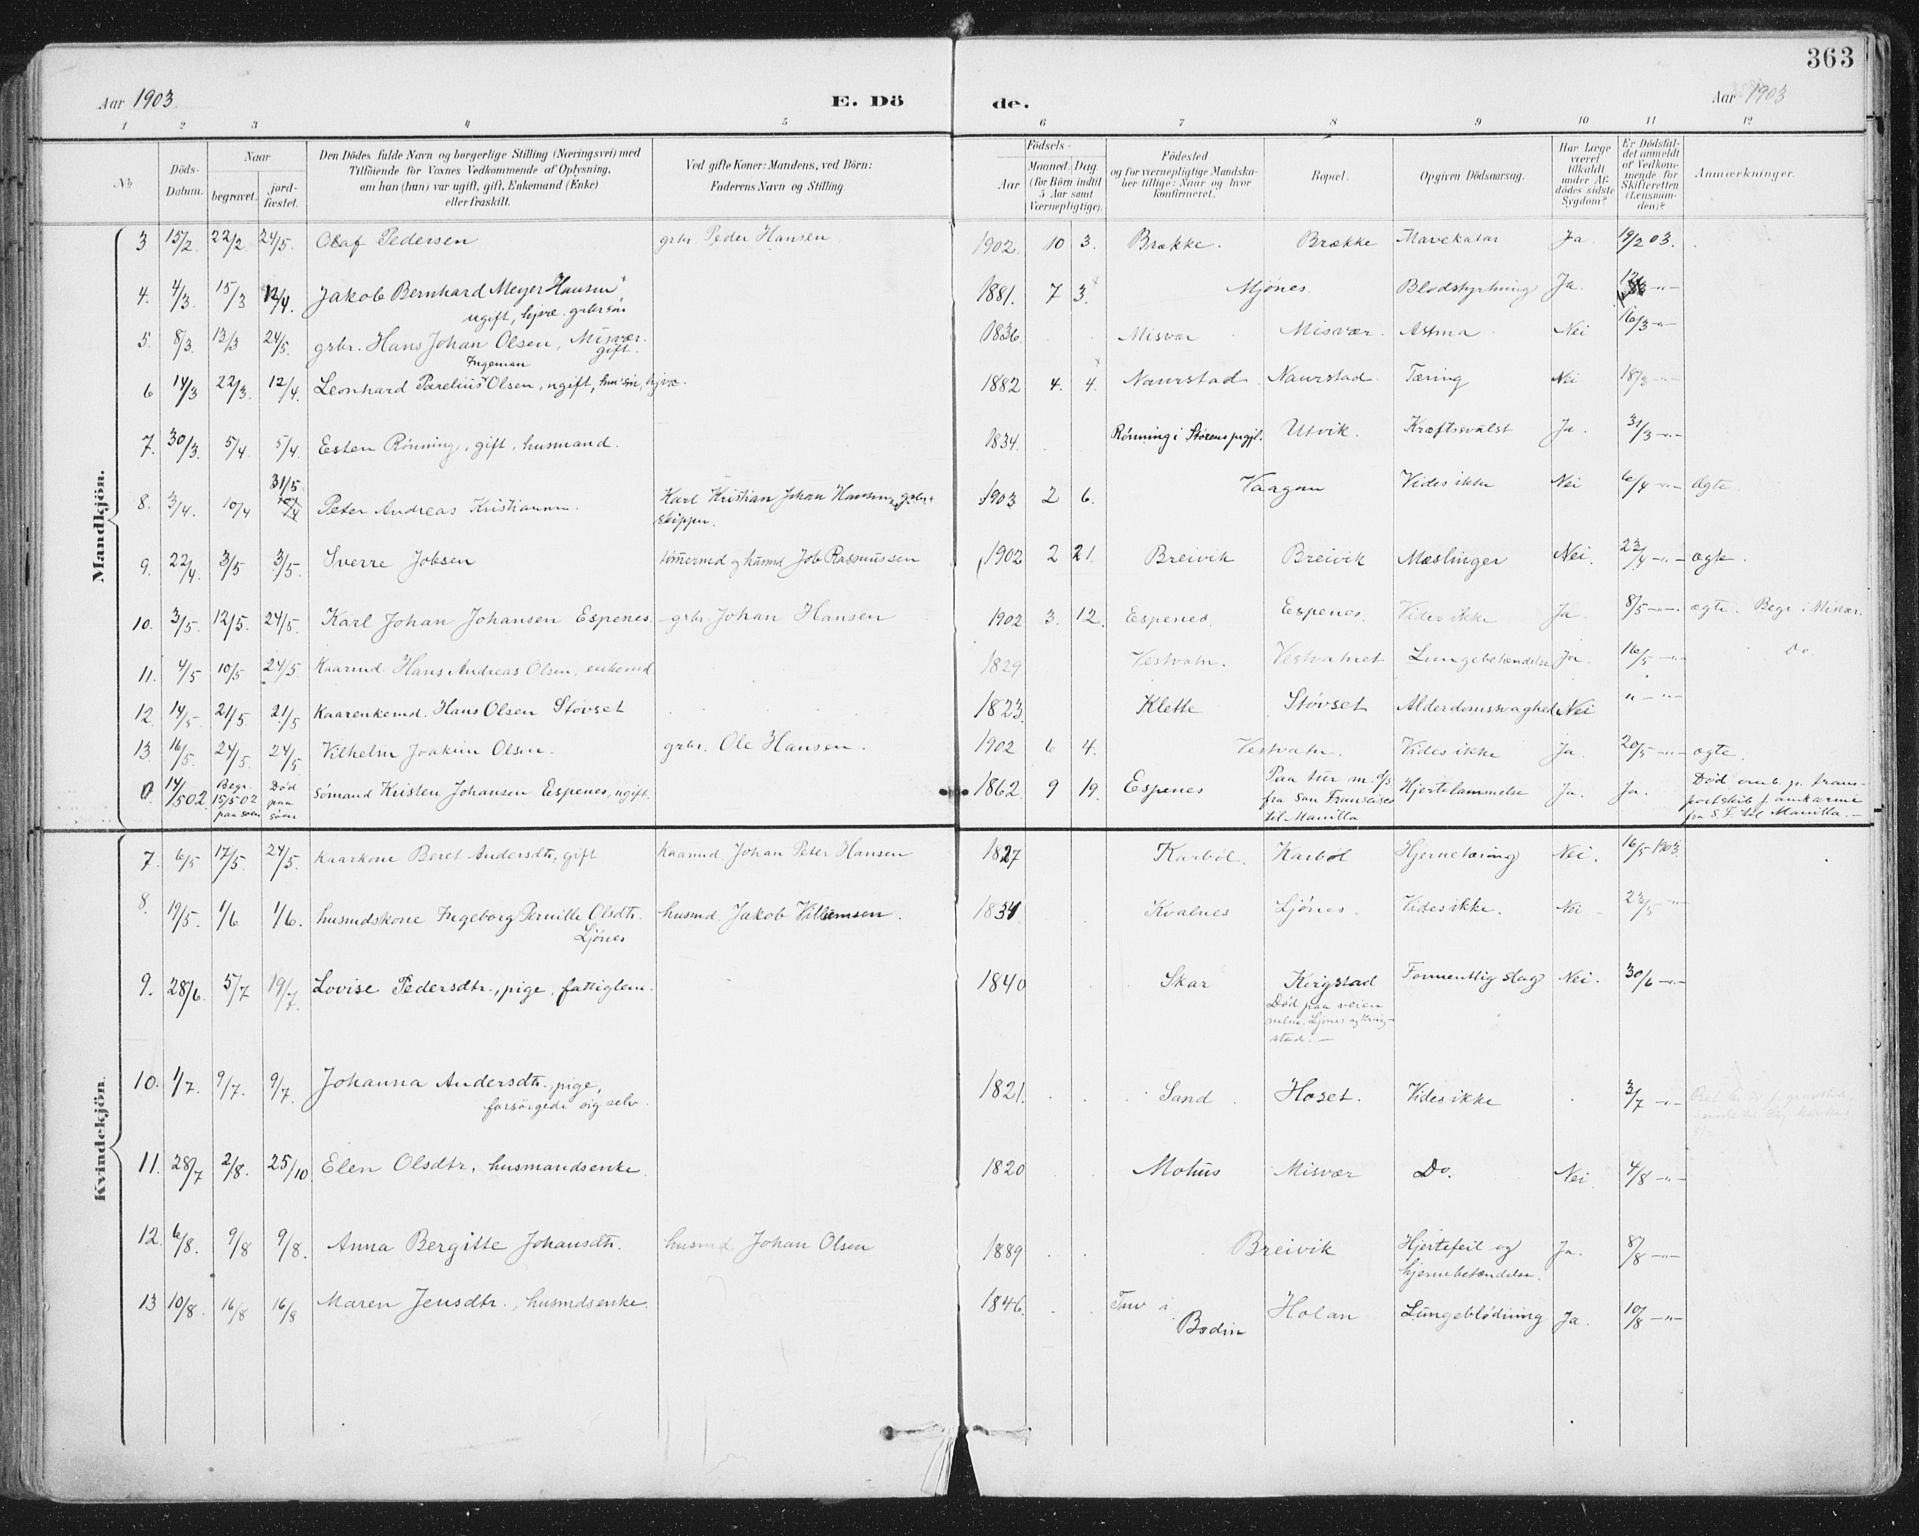 363
Aar 1903. E. Dö de. Aar 1903
1 2 3 4 5 6 7 8 9 10 11 12
No Döds-Datum. Naar begravet. jord-fæstet. Den Dödes fulde Navn og borgerlige Stilling (Næringsvei) med Tilföiende for Voxnes Vedkommende af Oplysning, om han (hun) var ugift, gift, Enkemand (Enke) eller fraskilt. Ved gifte Koner: Mandens, ved Börn: Faderens Navn og Stilling Födsels- Aar Maaned. Dag. (for Börn indtil 5 Aar samt Værnepligtige). Födested og for værnepligtige Mandska-ber tillige: Naar og hvor konfirmeret. Bopæl. Opgiven Dödsaarsag. Har Læge været tilkaldt under Af-dödes sidste Sygdom? Er Dödsfal-det anmeldt af Vedkom-mende for Skifteretten (Lensman-den)? Anmærkninger.
Mandkjön.
3 15/2 22/2 24/5. Olaf Pedersen grbr. Peder Hansen 1902 10 3. Brække. Brække Mavekatar Ja 19/2 03.
4. 4/3 15/3 12/4. Jakob Bernhard Meyer Hansen 1881. 7 3. Mjønes. Blodstyrtning Ja.
ugift, hjve. grbrsøn
5. 8/3 13/3 24/5. grbr. Hans Johan Olsen, Misvær. 1836. Misvær Misvær. Astma Nei 16/3 -"-
gift.
Ingeman
6 14/3 22/3. 12/4. Leonhard Parelius Olsen, ugift, hussøn, hjve. 1882 4. 4. Naurstad. Naurstad. Tæring Nei 18/3 -"-
7. 30/3 5/4 5/4. Esten Rönning, gift, husmand. 1834. Rönning i Störens prgjl. Utvik. Kræftsvulst Ja. 31/3 -"-
31/5
8. 3/4. 10/4 Peter Andreas Kristiansen. Karl Kristian Johan Hansen, grbr + skipper. 1903 2 6. Vaagan Vides ikke Nei 6/4 -"- Ægte.
9. 22/4. 3/5 3/5. Sverre Jobsen tømermd og husmd Job Rasmussen 1902 2 21. Breivik Breivik Mæslinger Nei. 23/4 -"- ægte.
10. 3/5. 12/5. 24/5. Karl Johan Johansen Espenes. grbr Johan Hansen 1902 3. 12. Espenes. Espenes. Vides ikke Ja. 8/5 -"- ægte. Begr. i Misvær.
11. 4/5 10/5 24/5 Kaarmd. Hans Andreas Olsen, enkemd. 1829 Vestvatn. Vestvatnet Lungebetændelse Ja. 16/5 -"- Do.
12. 14/5. 21/5 21/5 Kaarenkemd. Hans Olsen Støvset 1823. Klette Støvset Alderdomssvaghed Nei " -"-
13. 16/5. 24/5. 24/5 Vilhelm Joakim Olsen. grbr. Ole Hansen. 1902 6 4. Vestvatn. Vides ikke Ja. 20/5 -"- ægte.
0. 14/5 02. Begr. 15/5 02 paa søen Død paa søen sømand Kristen Johansen Espenes, ugift. 1862. 9 19. Espenes Paa tur m. fra San Francisco til Manilla Hjertelammelse Ja. Ja. Død omb. på transportskib f. amkarine fra S. F. til Manilla.
Kvindekjön.
7. 6/5 17/5. 24/5. Kaarkone Beret Andersdtr, gift kaarmd Johan Peter Hansen 1827 Karbøl. Karbøl Hjernetæring Nei. 16/5 1903.
8. 19/5. 1/6 1/6. husmdskone Ingeborg Pernille Olsdtr. husmd. Jakob Villumsen. 1834 Kvalnes Ljönes. Vides ikke. Nei 23/5 -"-
Ljönes
9. 28/6. 5/7 19/7. Lovise Pedersdtr., pige, fattiglem. 1840 Skar Kirgstad Formentlig slag Nei. 30/6 -"-
Död paa veien mlm. Ljönes og Kvigstad. -
10. 1/7. 9/7. 9/7. Johanna Andersdtr., pige, 1821. Sand Hoset. Vides ikke 3/7 -"-
forsörgede sig selv.
11. 28/7 2/8. 25/10 Elen Olsdtr, husmandsenke. 1820 Mohus Misvær Do. Nei. 4/8 -"-
12. 6/8. 9/8 9/8. Anna Bergitte Johansdtr. husmd Johan Olsen 1889 Breivik Hjertefeil og hjernebetændelse. Ja. 8/8 -"-
13 10/8. 16/8 16/8 Maren Jensdtr., husmdsenke. 1846. Tuv i Bodin Holan Lungeblødning Ja. 10/8 -"-